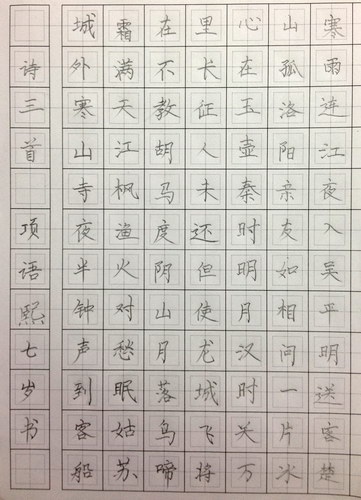 寒雨连江夜入吴平明送客楚
山孤洛阳亲友如相问一片冰
心在玉壶秦时明月汉时关万
里长征人未还但使龙城飞将
在不教胡马度阴山月落乌啼
霜满天江枫渔火对愁眠姑苏
城外寒山寺夜半钟声到客船
诗三首 项语熙七岁书